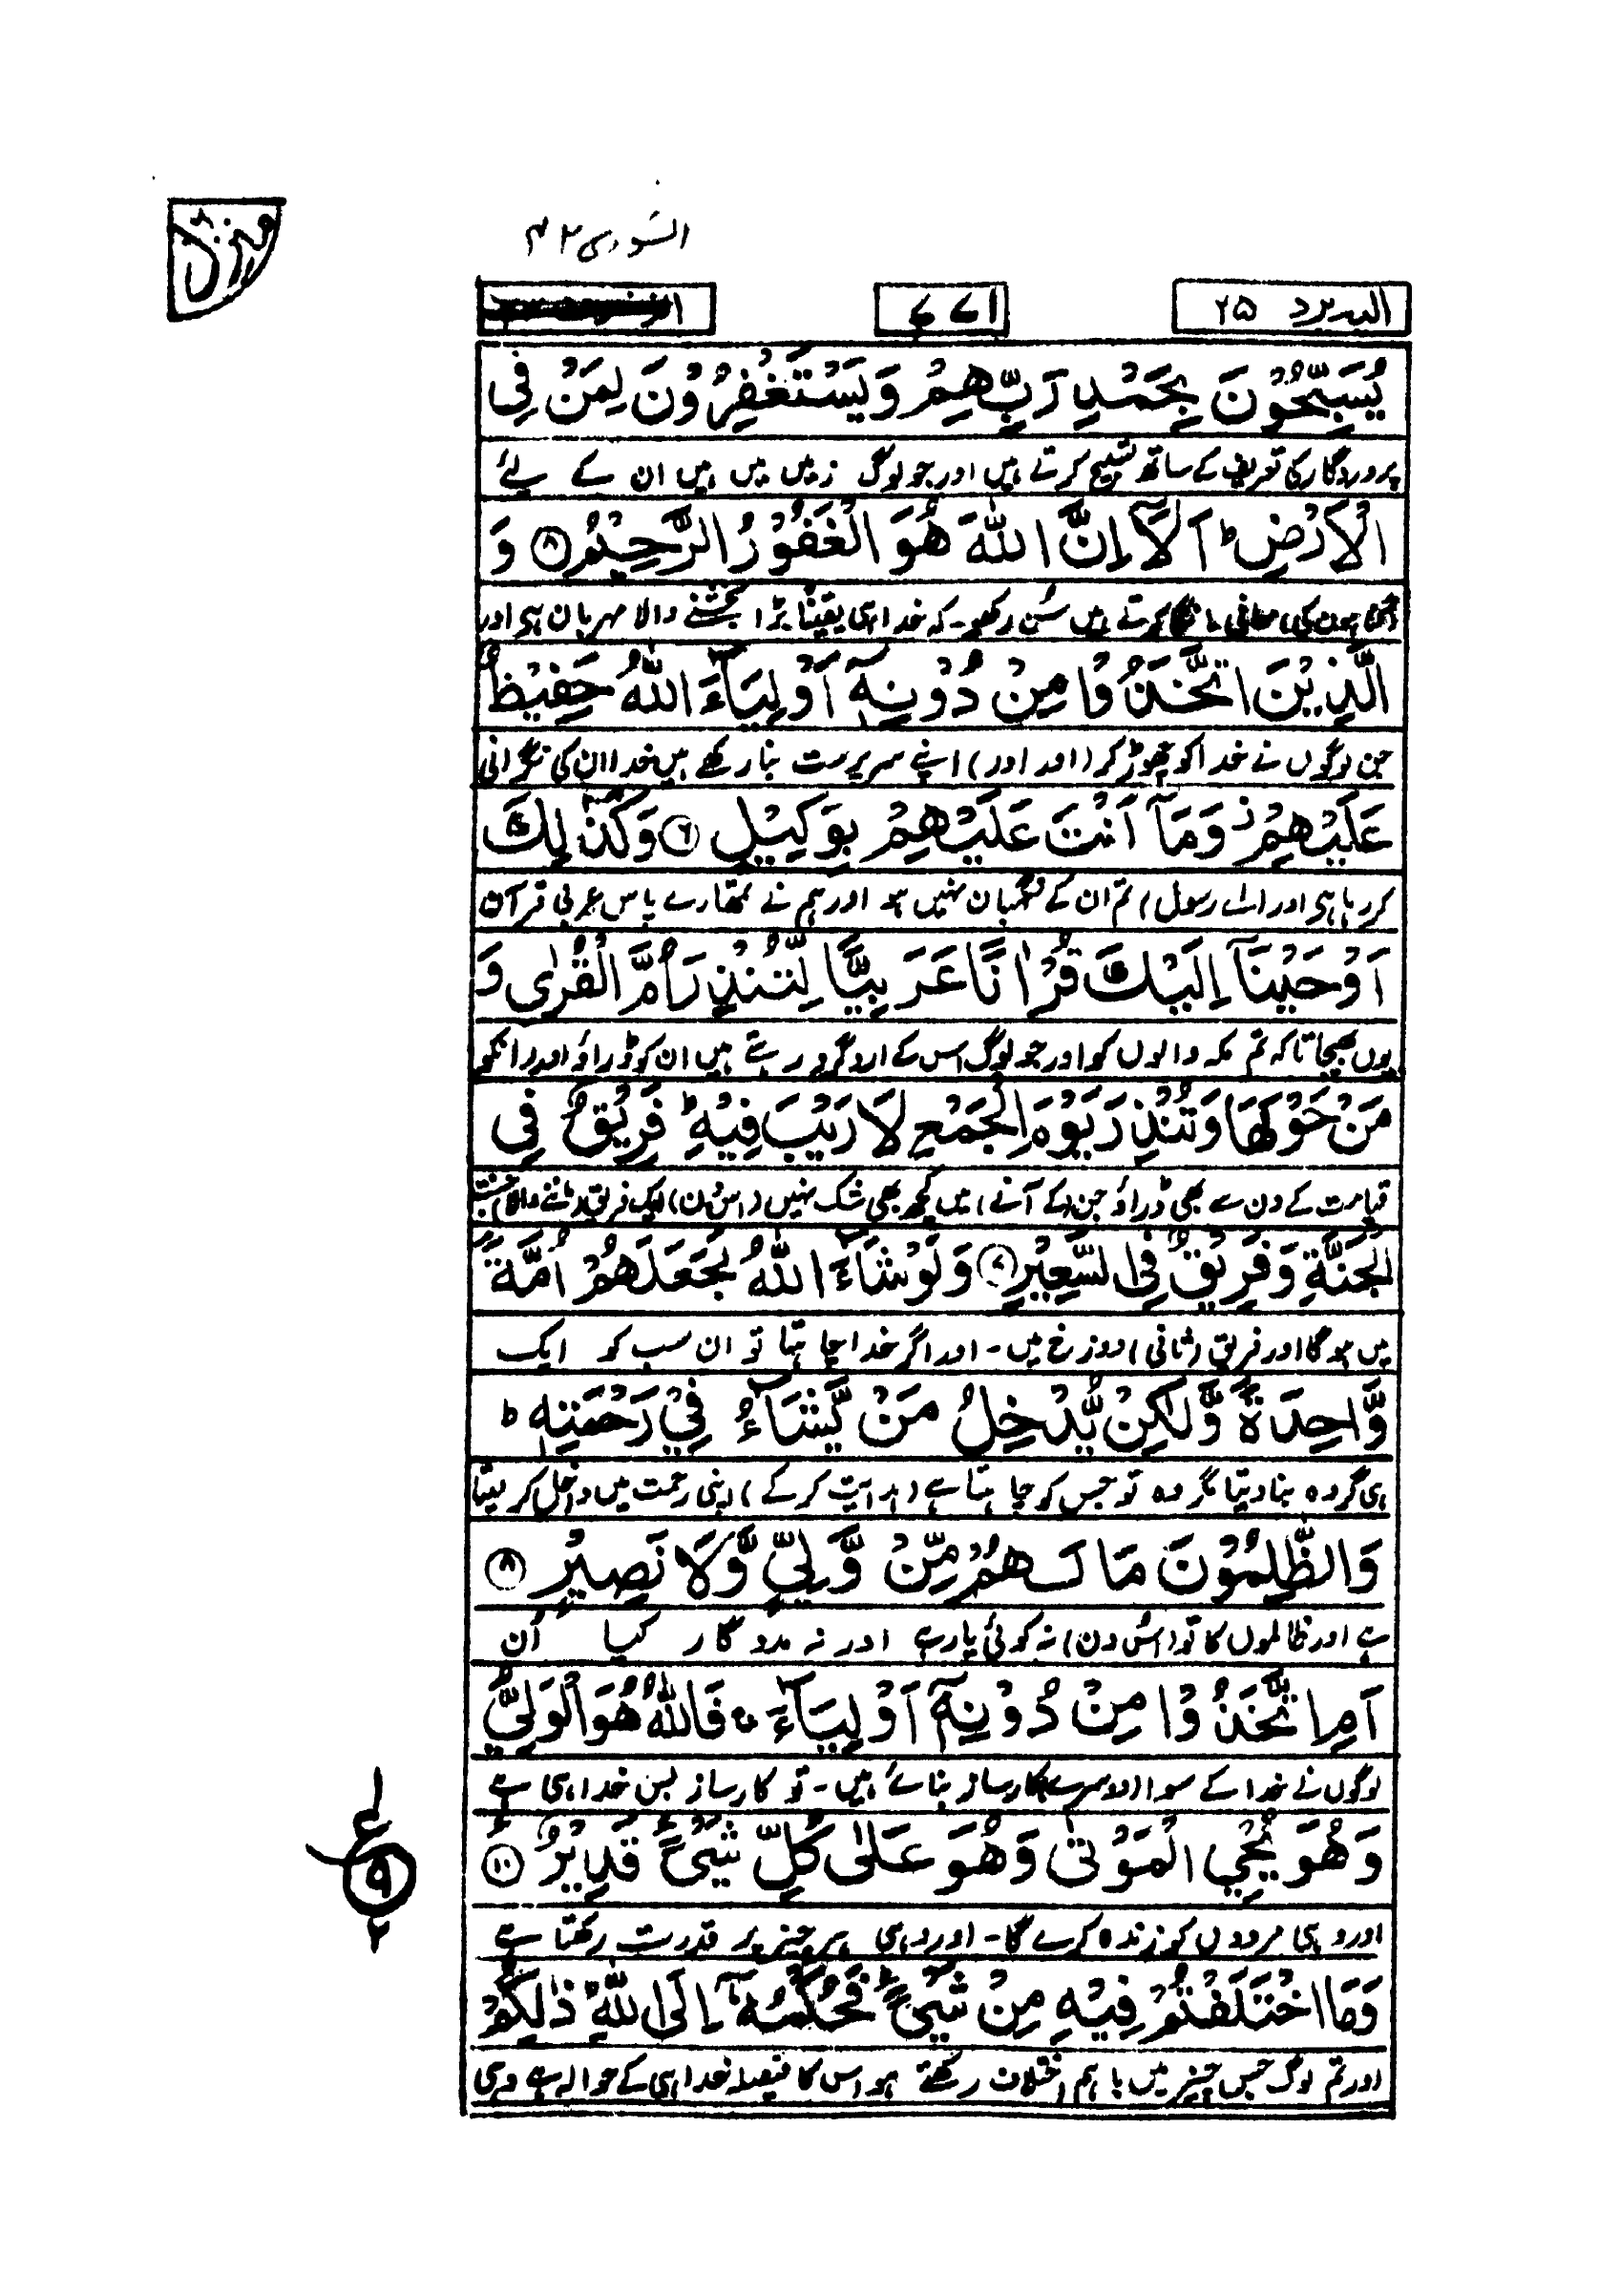 الشورى ٤٢
منزل
اليه يرد ٢٥
يُسَبِّحُوْنَ بِحَمْدِ رَبِّهِمْ وَيَسْتَغْفِرُوْنَ لِمَنْ فِى
پروردگار کی تعریف کے ساتھ تسبیح کرتے ہیں اور جو لوگ زمیں میں ہیں ان کے لئے
الْاَرْضِ ؕ اَلَآ اِنَّ اللّٰهَ هُوَ الْغَفُوْرُ الرَّحِيْمُ ﴿٨﴾ وَ
گناہوں کی معافی مانگا کرتے ہیں سُن رکھو۔ کہ خدا ہی یقیناً بڑا بخشنے والا مہربان ہی اور
الَّذِيْنَ اتَّخَذُوْا مِنْ دُوْنِهٖۤ اَوْلِيَآءَ اللّٰهُ حَفِيْظٌ
جن لوگوں نے خدا کو چھوڑ کر (اور اور) اپنے سرپرست بنا رکھے ہیں خدا ان کی نگرانی
عَلَيْهِمْ ۖ وَمَآ اَنْتَ عَلَيْهِمْ بِوَكِيْلٍ ﴿٦﴾ وَكَذٰلِكَ
کر رہا ہی اور (اے رسول) تم ان کے نگہبان نہیں ہو اور ہم نے تمھارے پاس عربی قرآن
اَوْحَيْنَآ اِلَيْكَ قُرْاٰنًا عَرَبِيًّا لِّتُنْذِرَ اُمَّ الْقُرٰى وَ
یوں بھیجا تا کہ تم مکہ والوں کو اور جو لوگ اس کے ارد گرد رہتے ہیں ان کو ڈراؤ اور انکو
مَنْ حَوْلَهَا وَتُنْذِرَ يَوْمَ الْجَمْعِ لَا رَيْبَ فِيْهِ ؕ فَرِيْقٌ فِى
قیامت کے دن سے بھی ڈراؤ جس (کے آنے) میں کچھ بھی شک نہیں (اس دن) ایک فریق
الْجَنَّةِ وَفَرِيْقٌ فِى السَّعِيْرِ ﴿٧﴾ وَلَوْ شَآءَ اللّٰهُ لَجَعَلَهُمْ اُمَّةً
میں ہو گا اور فریق (ثانی) دوزخ میں - اور اگر خدا چاہتا تو ان سب کو ایک
وَّاحِدَةً وَّلٰكِنْ يُّدْخِلُ مَنْ يَّشَآءُ فِيْ رَحْمَتِهٖ ؕ
ہی گروہ بنا دیتا مگر وہ تو جس کو چاہتا ہے (ہدایت کر کے) اپنی رحمت میں داخل کر لیتا
وَالظّٰلِمُوْنَ مَا لَهُمْ مِّنْ وَّلِيٍّ وَّلَا نَصِيْرٍ ﴿٨﴾
ہے اور ظالموں کا تو (اس دن) نہ کوئی یار ہے اور نہ مددگار کیا اُن
اَمِ اتَّخَذُوْا مِنْ دُوْنِهٖۤ اَوْلِيَآءَ ۚ فَاللّٰهُ هُوَ الْوَلِيُّ
لوگوں نے خدا کے سوا (دوسرے) کارساز بنائے ہیں - تو کارساز بس خدا ہی ہے
وَهُوَ يُحْيِ الْمَوْتٰى وَهُوَ عَلٰى كُلِّ شَيْءٍ قَدِيْرٌ ﴿١٠﴾
اور وہی مردوں کو زندہ کرے گا - اور وہی ہر چیز پر قدرت رکھتا ہے
ع
٩
٢
وَمَا اخْتَلَفْتُمْ فِيْهِ مِنْ شَيْءٍ فَحُكْمُهٗۤ اِلَى اللّٰهِ ؕ ذٰلِكُمُ
اور تم لوگ جس چیز میں باہم اختلاف رکھتے ہو اس کا فیصلہ خدا ہی کے حوالے ہے وہی